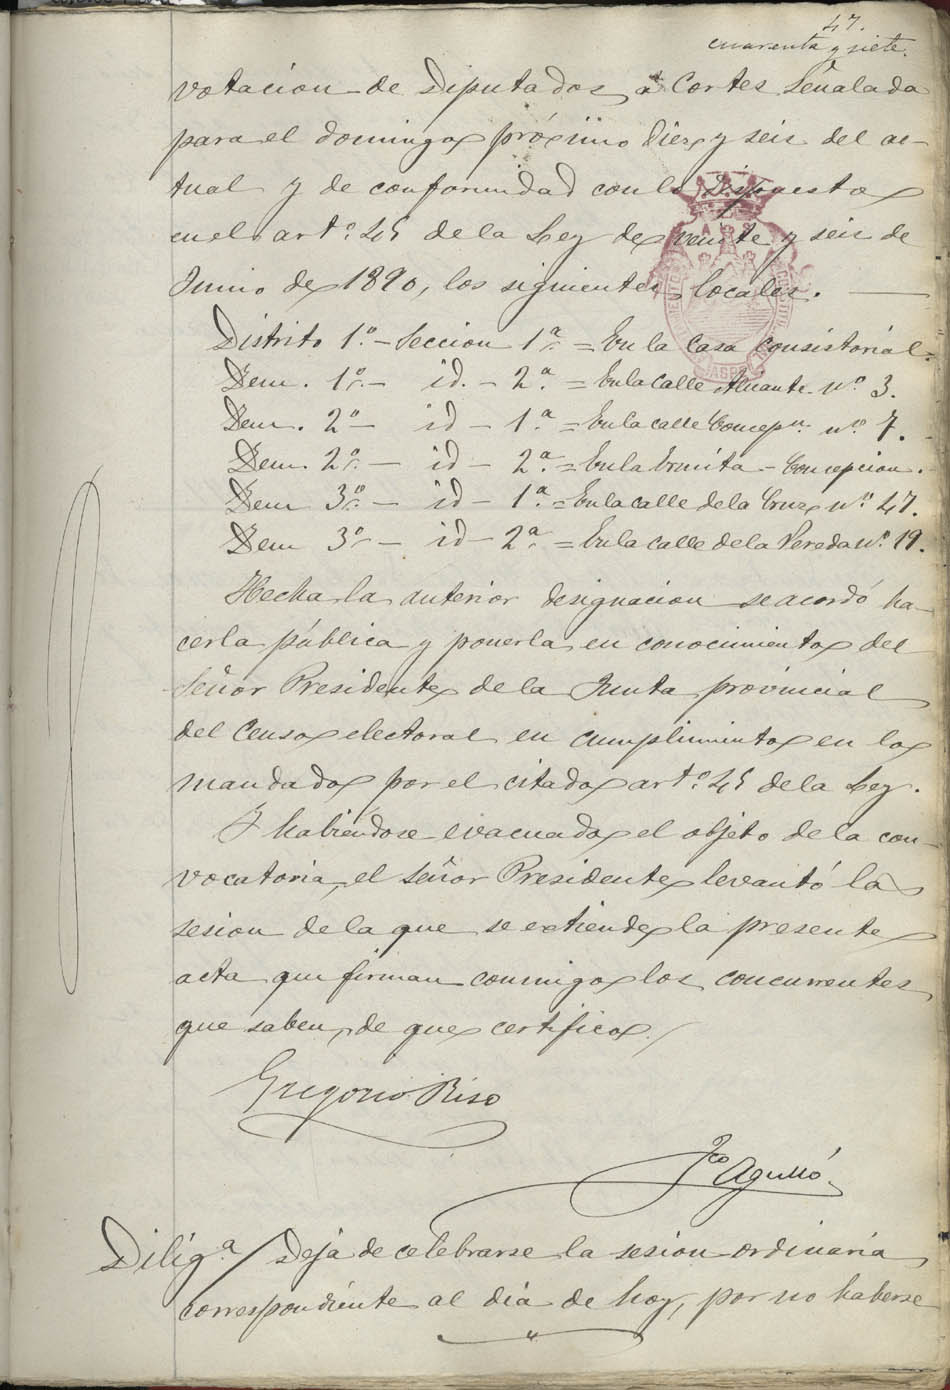 47.
cuarenta y siete.
votacion de Diputados á Cortes señalada
para el domingo próximo diez y seis del ac-
tual y de conformidad con lo dispuesto
en el artº. 45 de la Ley de veinte y seis de
Junio de 1890, los siguientes locales.
Distrito 1º. - Seccion 1ª. = En la Casa Consistorial.
Idem. 1º. - id. - 2ª. = En la calle Alicante nº. 3.
Idem. 2º - id - 1ª. = En la calle Concepn. nº. 7.
Idem. 2º. - id - 2ª. = En la Ermita - Concepcion.
Idem 3º. - id - 1ª. = En la calle de la Cruz nº. 47.
Idem 3º. - id - 2ª. = En la calle de la Vereda nº. 19.
Hecha la anterior designacion se acordó ha-
cerla pública y ponerla en conocimiento del
Señor Presidente de la Junta provincial
del Censo electoral en cumplimiento en lo
mandado por el citado artº. 45 de la Ley.
Y habiéndose evacuado el objeto de la con-
vocatoria, el señor Presidente levantó la
sesion de la que se extiende la presente
acta que firman conmigo los concurrentes
que saben, de que certifico.
Gregorio Riso
Fco Agulló.
Diligª / Deja de celebrarse la sesion ordinaria
correspondiente al dia de hoy, por no haberse